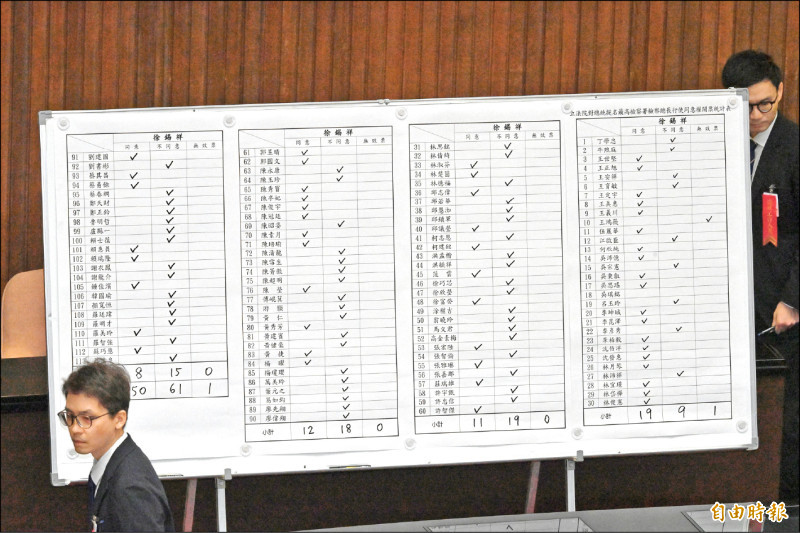 立法院對總統提名最高檢察署檢察總長行使同意權開票統計表
徐錫祥
同意 不同意 無效票
91 劉建國 ✓
92 劉書彬 ✓
93 蔡其昌 ✓
94 蔡易餘 ✓
95 ✓
96 鄭天財 ✓
97 鄭正鈐 ✓
98 魯明哲 ✓
99 盧縣一 ✓
100 賴士葆 ✓
101 賴惠員 ✓
102 賴瑞隆 ✓
103 謝衣鳳 ✓
104 謝龍介 ✓
105 鍾佳濱 ✓
106 韓國瑜 ✓
107 顏寬恒 ✓
108 羅廷瑋 ✓
109 羅明才 ✓
110 羅美玲 ✓
111 羅智強 ✓
112 蘇巧慧 ✓
8 15 0
50 61 1
徐錫祥
同意 不同意 無效票
61 郭昱晴 ✓
62 郭國文 ✓
63 陳永康 ✓
64 陳玉珍 ✓
65 陳秀寳 ✓
66 陳亭妃 ✓
67 陳俊宇 ✓
68 陳冠廷 ✓
69 陳昭姿 ✓
70 陳素月 ✓
71 陳培瑜 ✓
72 陳清龍 ✓
73 陳雪生 ✓
74 陳菁徽 ✓
75 陳超明 ✓
76 陳瑩 ✓
77 傅崐萁 ✓
78 游顥 ✓
79 黃仁 ✓
80 黃秀芳 ✓
81 黃建賓 ✓
82 黃健豪 ✓
83 黃捷 ✓
84 楊曜 ✓
85 楊瓊瓔 ✓
86 萬美玲 ✓
87 葉元之 ✓
88 葛如鈞 ✓
89 廖先翔 ✓
90 廖偉翔 ✓
小計 12 18 0
徐錫祥
同意 不同意 無效票
31 林思銘 ✓
32 林倩綺 ✓
33 林淑芬 ✓
34 林楚茵 ✓
35 林德福 ✓
36 邱志偉 ✓
37 邱若華 ✓
38 邱慧洳 ✓
39 邱鎮軍 ✓
40 邱議瑩 ✓
41 柯志恩 ✓
42 柯建銘 ✓
43 洪孟楷 ✓
44 洪毓祥 ✓
45 范雲 ✓
46 徐巧芯 ✓
47 徐欣瑩 ✓
48 徐富癸 ✓
49 ✓
50 翁曉玲 ✓
51 馬文君 ✓
52 高金素梅 ✓
53 張宏陸 ✓
54 張智倫 ✓
55 張雅琳 ✓
56 張嘉郡 ✓
57 莊瑞雄 ✓
58 許宇甄 ✓
59 許忠信 ✓
60 許智傑 ✓
小計 11 19 0
徐錫祥
同意 不同意 無效票
1 丁學忠 ✓
2 牛煦庭 ✓
3 王世堅 ✓
4 王正旭 ✓
5 王安祥 ✓
6 王育敏 ✓
7 王定宇 ✓
8 王美惠 ✓
9 王義川 ✓
10 王鴻薇 ✓
11 伍麗華 ✓
12 江啟臣 ✓
13 何欣純 ✓
14 吳沛憶 ✓
15 吳宗憲 ✓
16 吳秉叡 ✓
17 吳思瑤 ✓
18 吳琪銘 ✓
19 呂玉玲 ✓
20 李坤城 ✓
21 李昆澤 ✓
22 李彥秀 ✓
23 李柏毅 ✓
24 沈伯洋 ✓
25 沈發惠 ✓
26 林月琴 ✓
27 林沛祥 ✓
28 林宜瑾 ✓
29 林岱樺 ✓
30 林俊憲 ✓
小計 19 9 1
自由時報